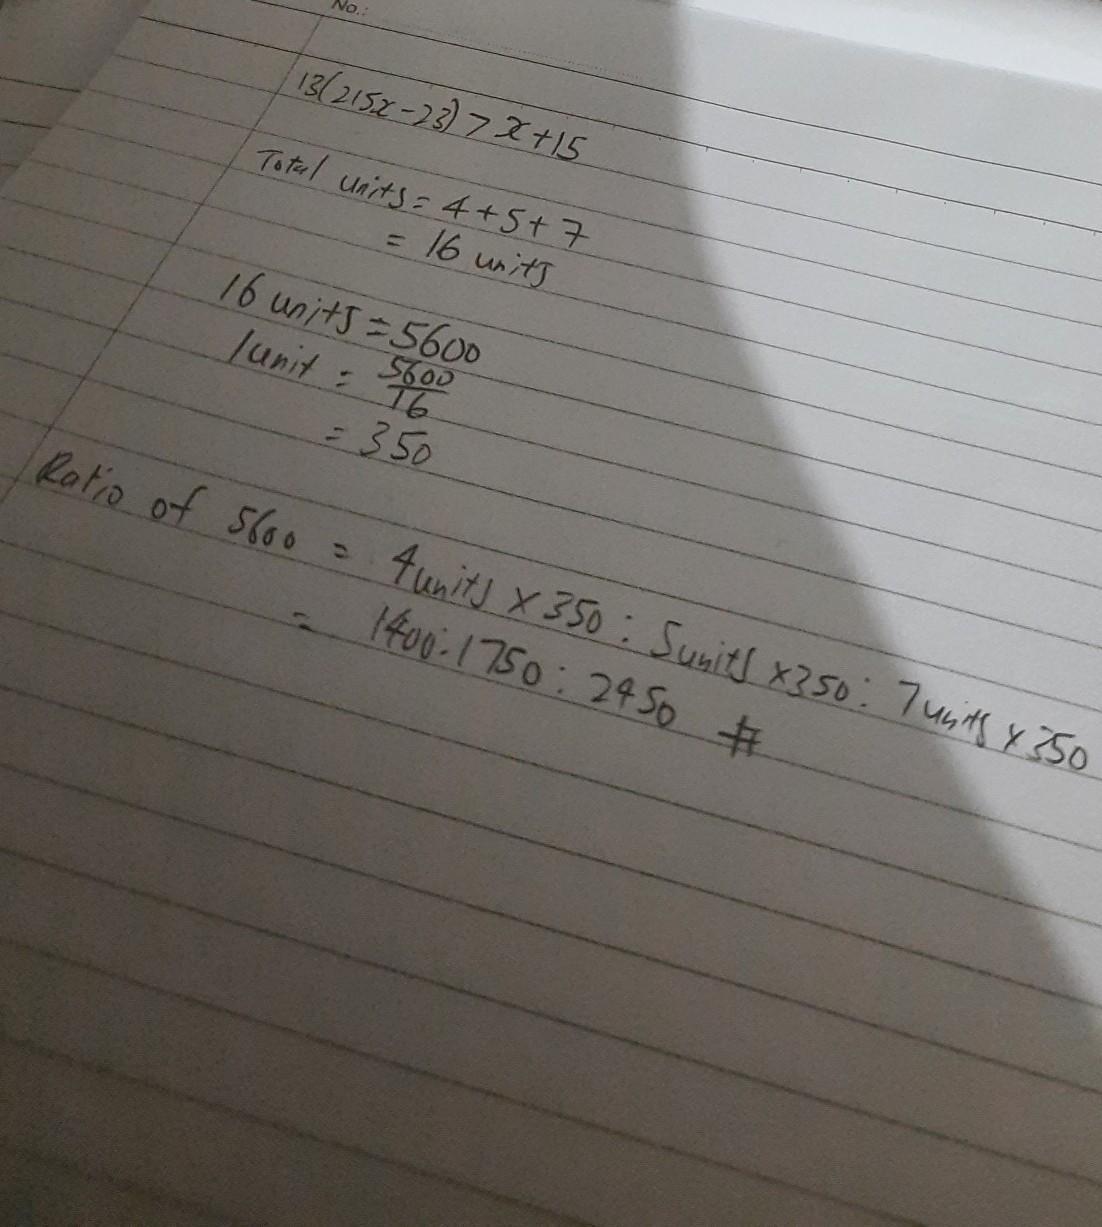 No.:
13(215x-23) > x+15
Total units = 4+5+7
= 16 units
16 units = 5600
1 unit = 5600/16
= 350
Ratio of 5600 = 4units × 350 : 5units × 350 : 7units × 350
= 1400:1750:2450 #